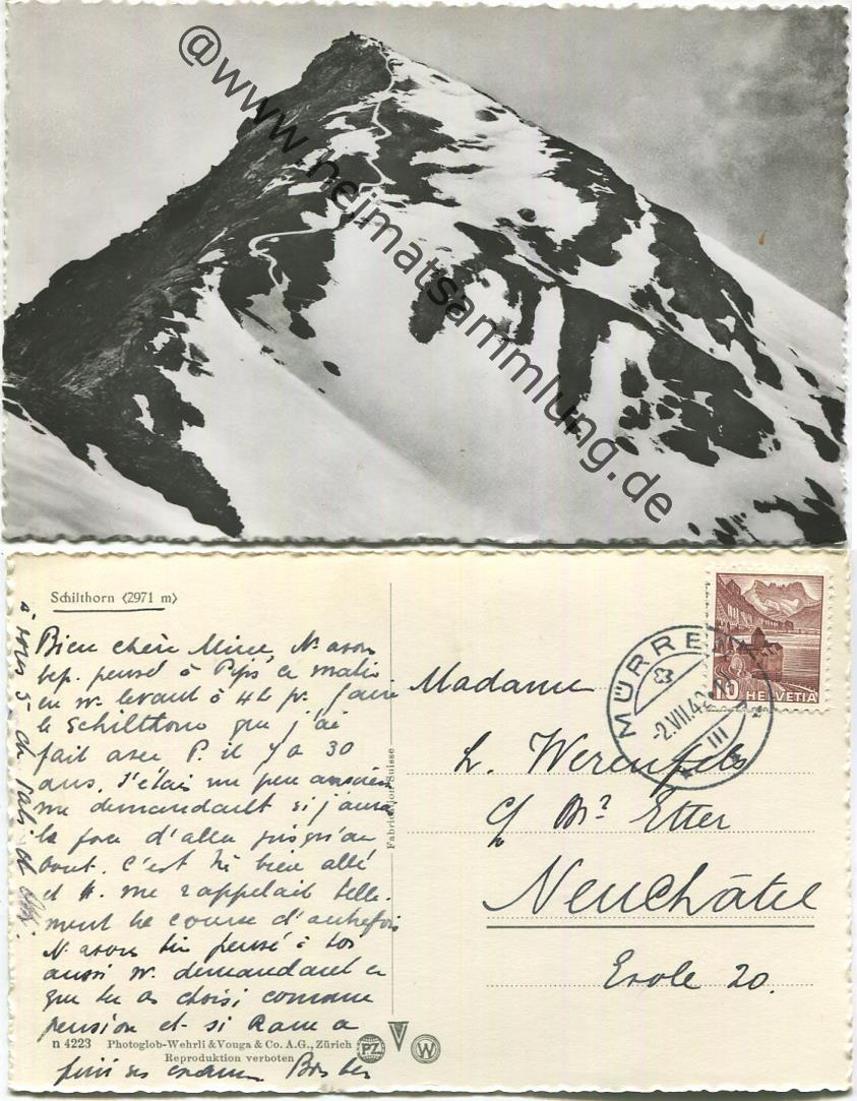 @www.heimatsammlung.de
Schilthorn (2971 m)
Bien chère Mine N. avons
bep. pensé à Pipi ce matin
en n. levant à 4 h pr. faire
le Schilthorn que j'ai
fait avec P. il y a 30
ans. J'étais un peu
me demandait si j'aurai
la force d'aller jusqu'au
bout. C'est très bien allé
et me rappelait telle-
ment la course d'autrefois
N. avons bien pensé à toi
aussi n. demandant ce
que tu as choisi comme
pension et si a
fini ses exam.
à vous
n 4223 Photoglob-Wehrli & Vouga & Co. A.G., Zürich PZ W
Reproduktion verboten
Fabrication Suisse
MÜRREN
-2.VII.42
III
10 HELVETIA
Madame
L. Werenfels
c/ Mr. Etter
Neuchâtel
Ecole 20.